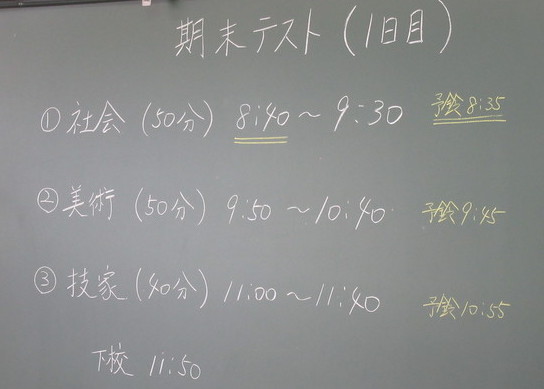 期末テスト(1日目)
①社会(50分) 8:40～9:30 予鈴8:35
②美術(50分) 9:50～10:40 予鈴9:45
③技家(40分) 11:00～11:40 予鈴10:55
下校 11:50